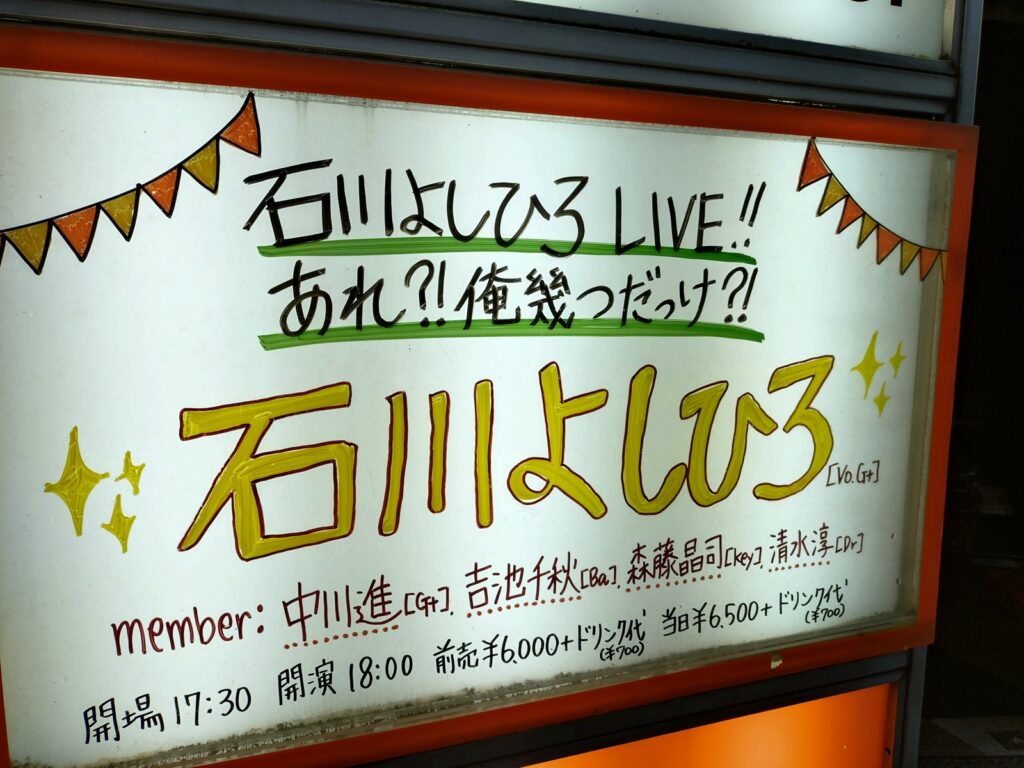 石川よしひろ LIVE!!
あれ?!俺幾つだっけ?!
石川よしひろ [Vo.Gt]
member: 中川進[Gt]. 吉池千秋[Ba]. 森藤晶司[key]. 清水淳[Dr]
開場 17:30 開演 18:00 前売¥6,000+ドリンク代(¥700) 当日¥6,500+ドリンク代(¥700)